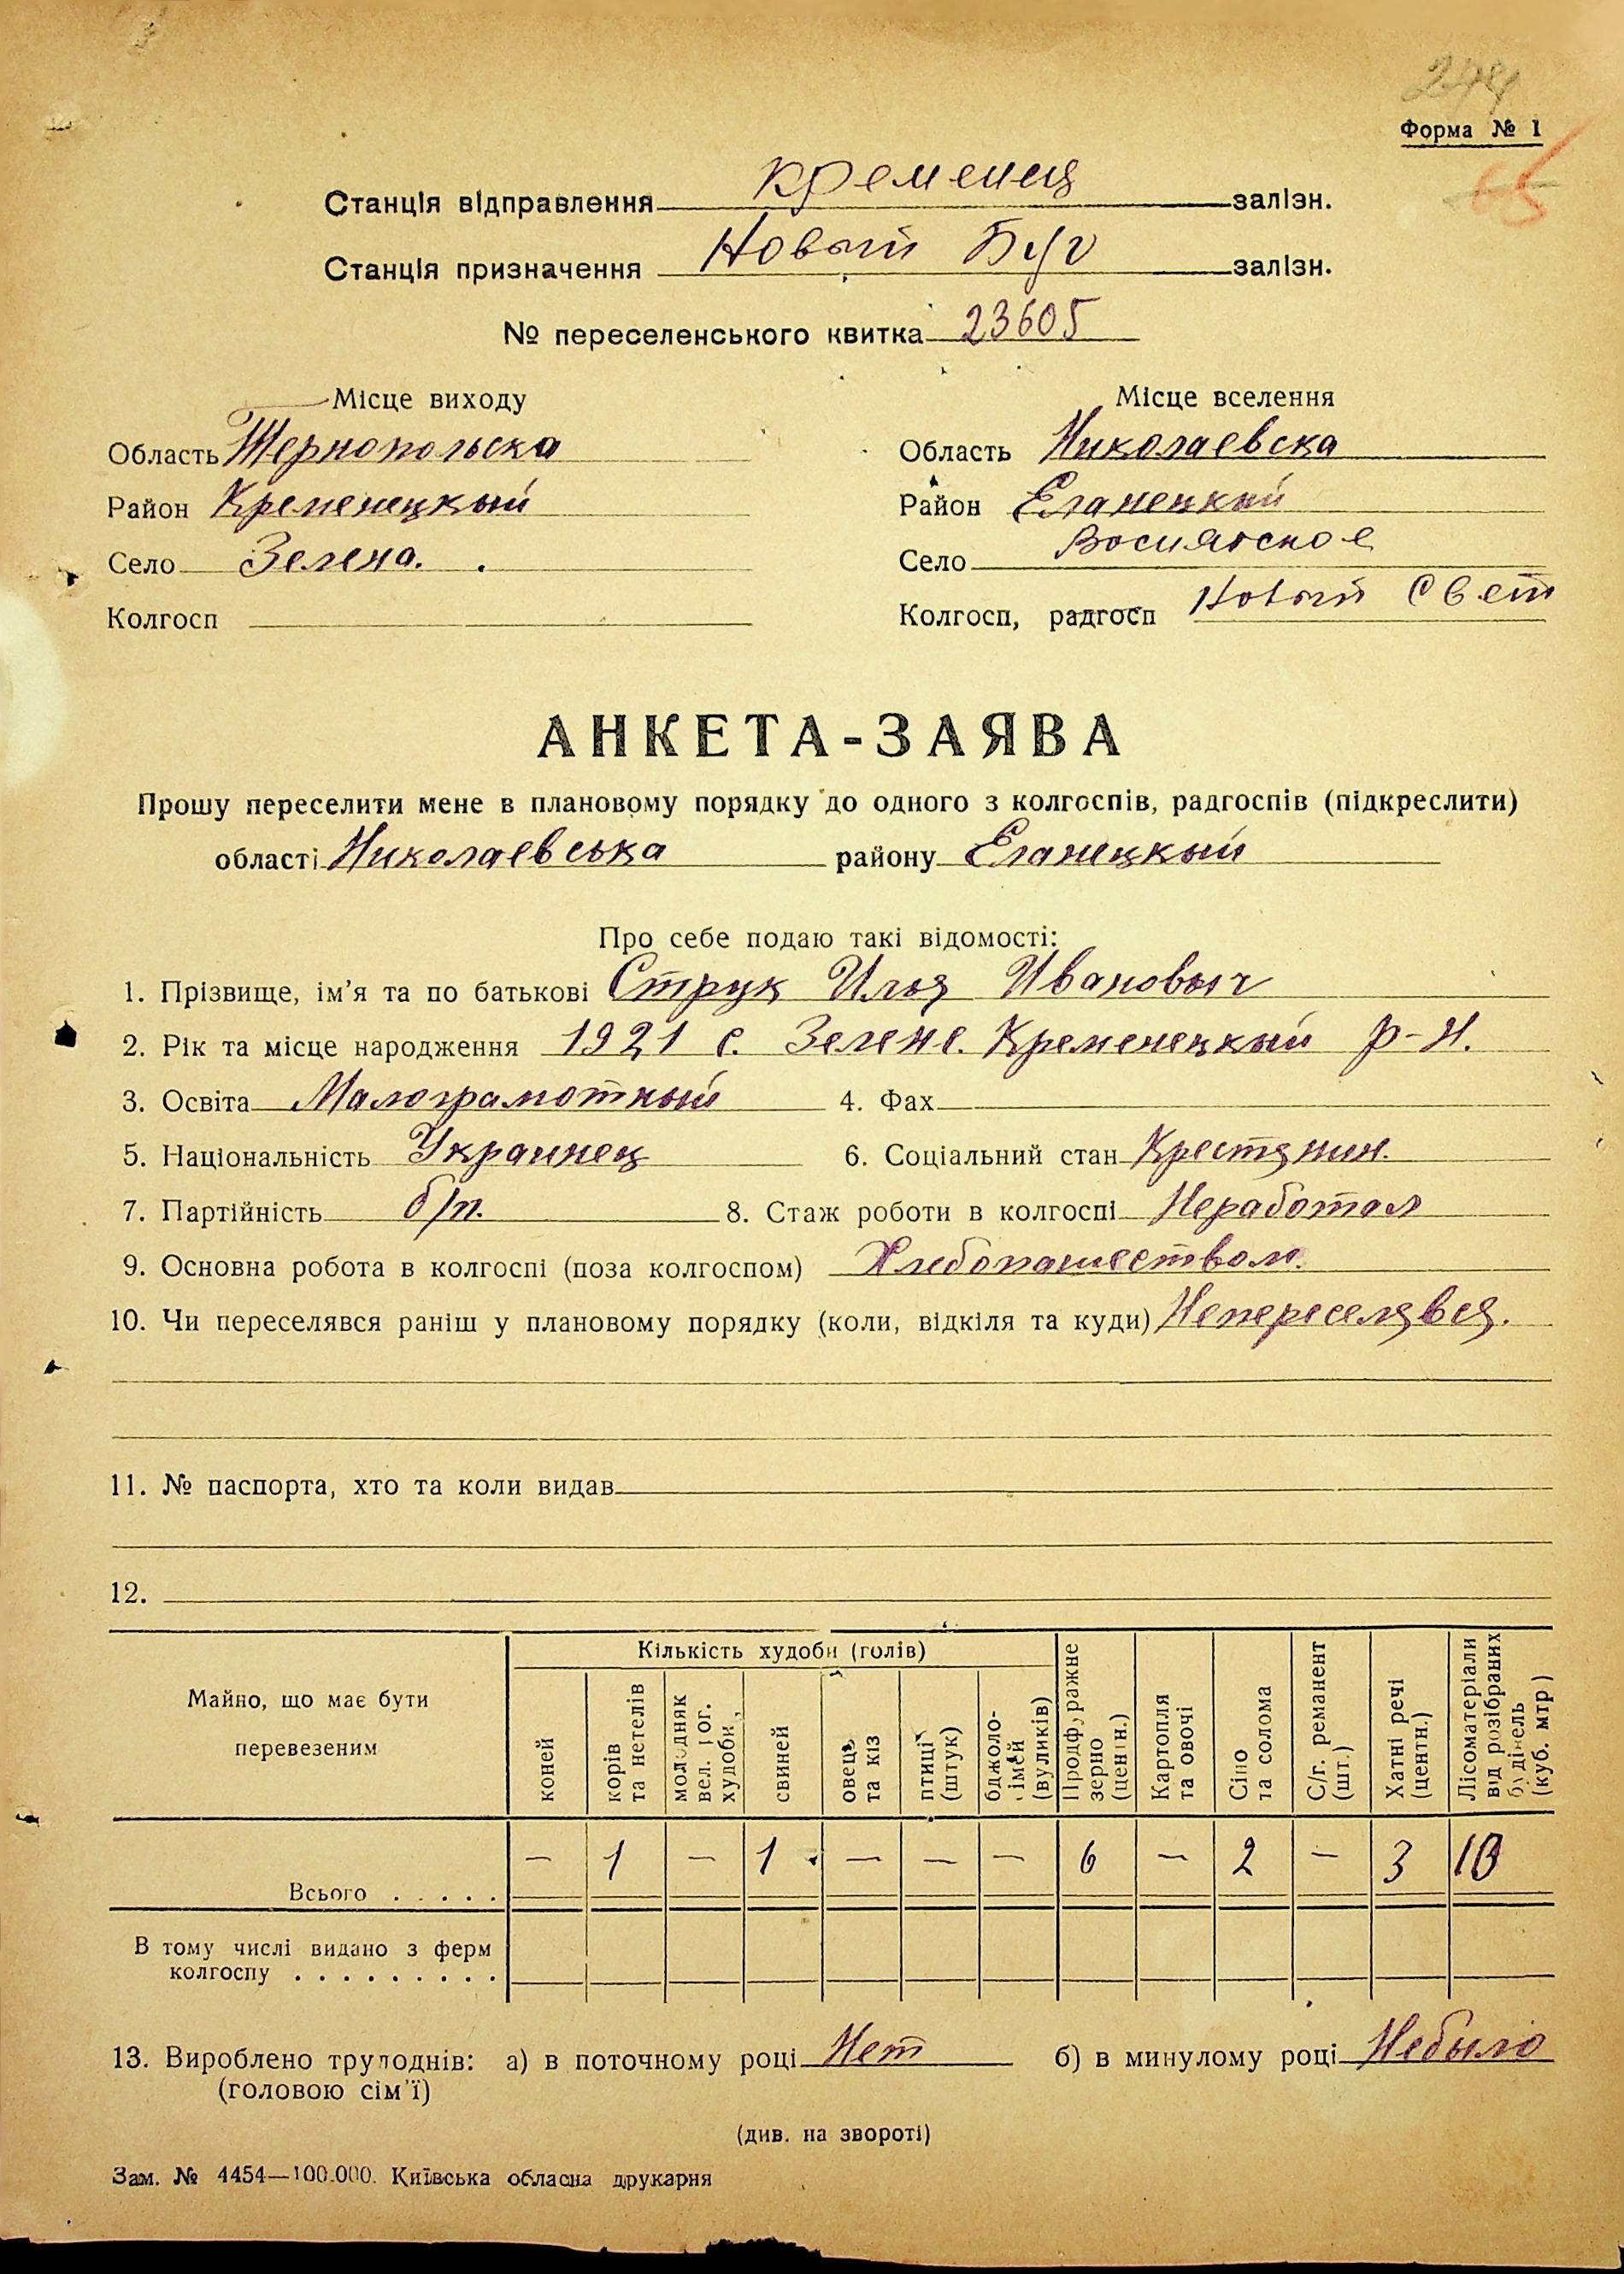 244
Форма № 1
65
Станція відправлення Кременец залізн.
Станція призначення Новый Буг залізн.
№ переселенського квитка 23605
Місце виходу Місце вселення
Область Тернопольска Область Николаевска
Район Кременецкый Район Еланецкий
Село Зелена. Село Восиятское
Колгосп Колгосп, радгосп Новый Свет
АНКЕТА-ЗАЯВА
Прошу переселити мене в плановому порядку до одного з колгоспів, радгоспів (підкреслити)
області Николаевська району Еланецкый
Про себе подаю такі відомості:
1. Прізвище, ім'я та по батькові Струк Илья Ивановыч
2. Рік та місце народження 1921 с. Зелене. Кременецкый р-н.
3. Освіта Малограмотный 4. Фах
5. Національність Украинец 6. Соціальний стан Крестянин.
7. Партійність б/п. 8. Стаж роботи в колгоспі Неработал
9. Основна робота в колгоспі (поза колгоспом) Хлебопашеством.
10. Чи переселявся раніш у плановому порядку (коли, відкіля та куди) Непереселявся.
11. № паспорта, хто та коли видав
12.
Майно, що має бути перевезеним
Кількість худоби (голів)
коней
корів та нетелів
молодняк вел. рог. худоби
свиней
овець та кіз
птиці (штук)
бджоло-сімей (вуликів)
Продфуражне зерно (центн.)
Картопля та овочі
Сіно та солома
С/г. реманент (шт.)
Хатні речі (центн.)
Лісоматеріали від розібраних будівель (куб. мтр)
Всього . . . . . — 1 — 1 — — — 6 — 2 — 3 10
В тому числі видано з ферм
колгоспу . . . . . . . . .
13. Вироблено трудоднів: а) в поточному році Нет б) в минулому році Небыло
(головою сім'ї)
(див. на звороті)
Зам. № 4454—100.000. Київська обласна друкарня